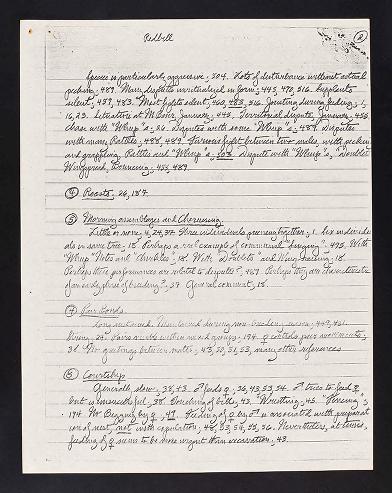 Redbill
2
Species is particularly aggressive, 504. Lots of disturbance without actual
pecking, 489. Many disputes unritualized in form, 445, 470, 516. Supplants
silent, 459, 483. Most fights silent, 460, 483, 516. Jousting during feeding, 1,
16, 29. Literature at Wilson, January, 445. Territorial dispute, January, 456.
chase with "Whup"s, 26. Disputes with some "Whup"s, 489. Disputes
with many Rattles, 488, 489. Furious fight between two males, with pecking
and grappling, Rattles and "Whup"s, 503. Dispute with "Whup"s,
Wingspread, Bouncing, 455, 489.
④ Roosts, 26, 137.
⑤ Morning assemblages and Chorusing.
Little or none, 4, 24, 37. Three individuals preening together, 1. Six individu-
als in same tree, 18. Perhaps a real example of communal "singing", 495. With
"Whup" Notes and "Warbles", 18. With and Wing-raising, 18.
Perhaps these performances are related to disputes?, 489. Perhaps they are characteristic
of an early phase of breeding?, 37. General comment, 18.
⑦ Pair bonds.
Long sustained. Maintained during non-breeding season, 449, 451.
Strong, 29. Pairs exist within mixed groups, 194. ♀ controls pair movements,
38. No greetings between mates, 43, 50, 51, 53, many other references
⑧ Courtship
Generally slow, 38, 43. ♂ feeds ♀, 36, 43, 53, 54. ♂ tries to feed ♀
but is unsuccessful, 38. Touching of bills, 43. "Nuzzling", 45. "Fencing",
194. No Begging by ♀, 47. Feeding of ♀ by ♂ is associated with preparat-
ion of nest, not with copulation, 48, 53, 54, 55, 56. Nevertheless, at times,
feeding of ♀ seems to be more urgent than excavation, 43.